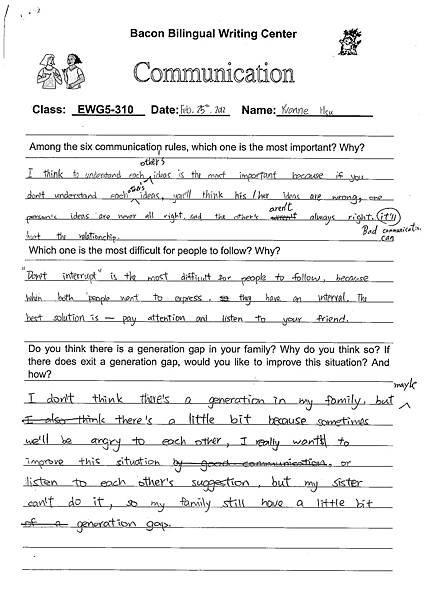 Bacon Bilingual Writing Center
Communication
Class: EWG5-310 Date: Feb. 25th, 2012 Name: Yvonne Hsu
Among the six communication rules, which one is the most important? Why?
others'
I think to understand each ideas is the most important because if you
don't understand each ideas, you'll think his/her ideas are wrong, one
aren't
person's ideas are never all right, and the other's always right. it'll
Bad communication can
hurt the relationship.
Which one is the most difficult for people to follow? Why?
"Don't interrupt" is the most difficult for people to follow, because
when both people want to express, so they have an interval. The
best solution is — pay attention and listen to your friend.
Do you think there is a generation gap in your family? Why do you think so? If
there does exit a generation gap, would you like to improve this situation? And
how?
maybe
I don't think there's a generation in my family, but
I also think there's a little bit because sometimes
we'll be angry to each other, I really want to
improve this situation by good communication, or
listen to each other's suggestion, but my sister
can't do it, so my family still have a little bit
of a generation gap.